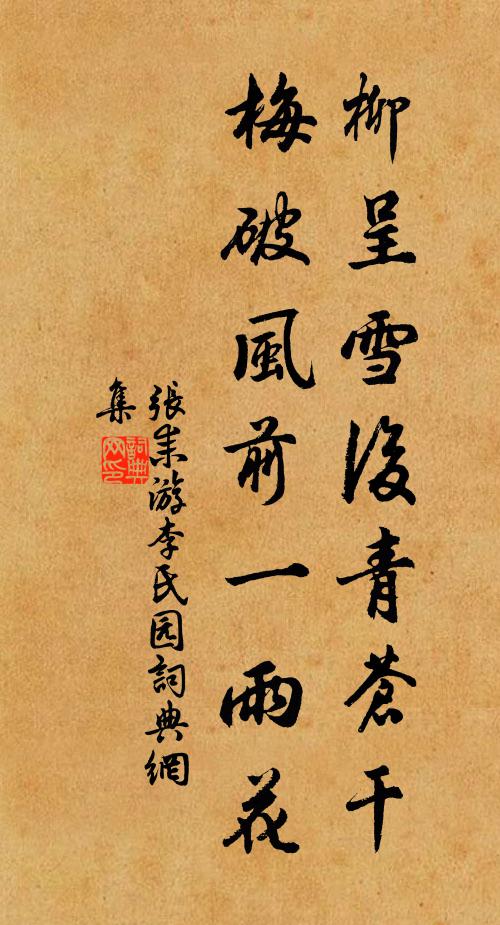 柳呈雪後青蒼干
梅破風前一兩花
張耒游李氏园詞典網
集
詞典網印